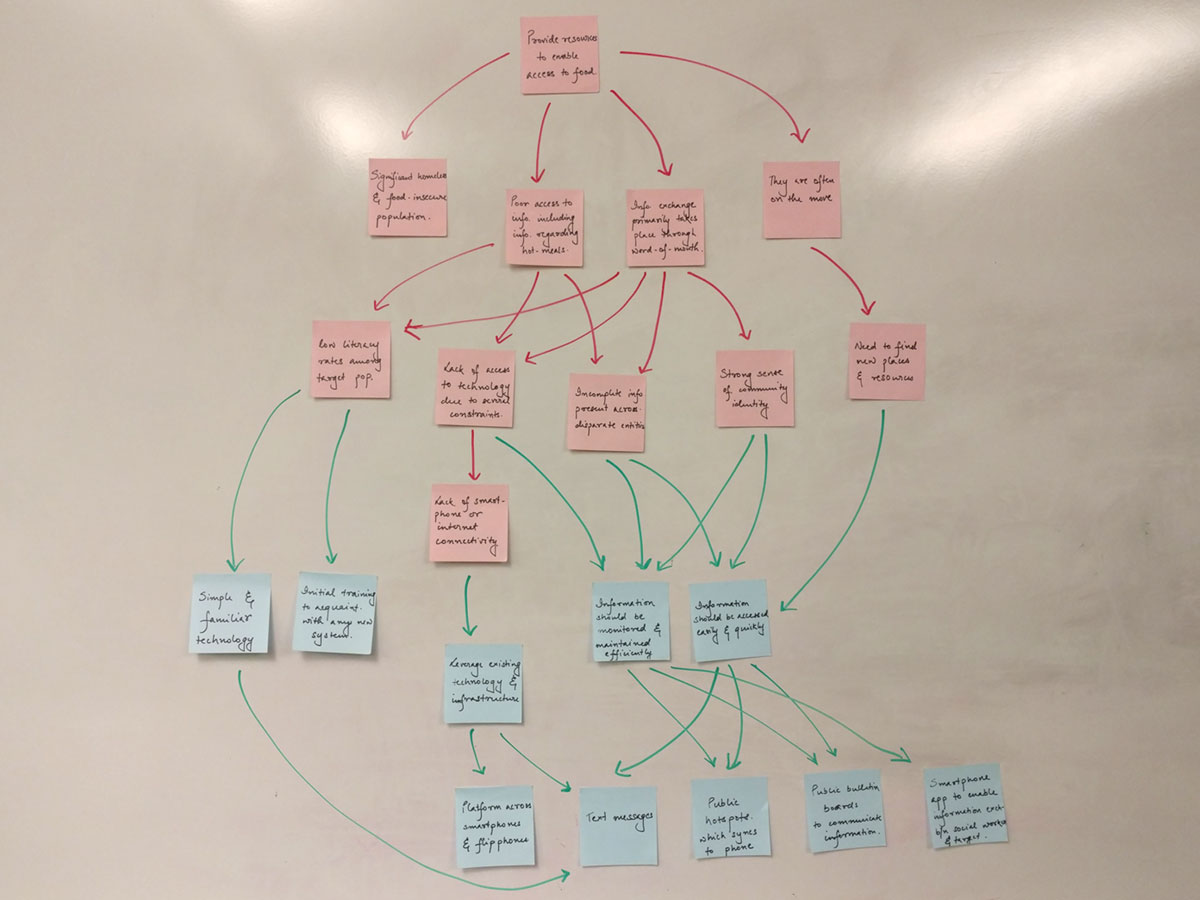 Provide resources
to enable
access to food
Significant homeless
& food-insecure
population.
Poor access to
info. including
info. regarding
hot-meals.
Info exchange
primarily takes
place through
word-of-mouth.
They are often
on the move
Low literacy
rates among
target pop.
Lack of access
to technology
due to several
constraints.
Incomplete info
present across
disparate entities
Strong sense
of community
identity
Need to find
new places
& resources
Lack of smart-
phone or
internet
connectivity
Simple &
familiar
technology
Initial training
to acquaint
with any new
system.
Information
should be
monitored &
maintained
efficiently
Information
should be accessed
easily & quickly
Leverage existing
technology &
infrastructure
Platform across
smartphones
& flip phones
Text messages
Public
hotspots
which syncs
to phone
Public bulletin
boards
to communicate
information.
Smartphone
app to enable
information exch-
b/n social worker
& target.